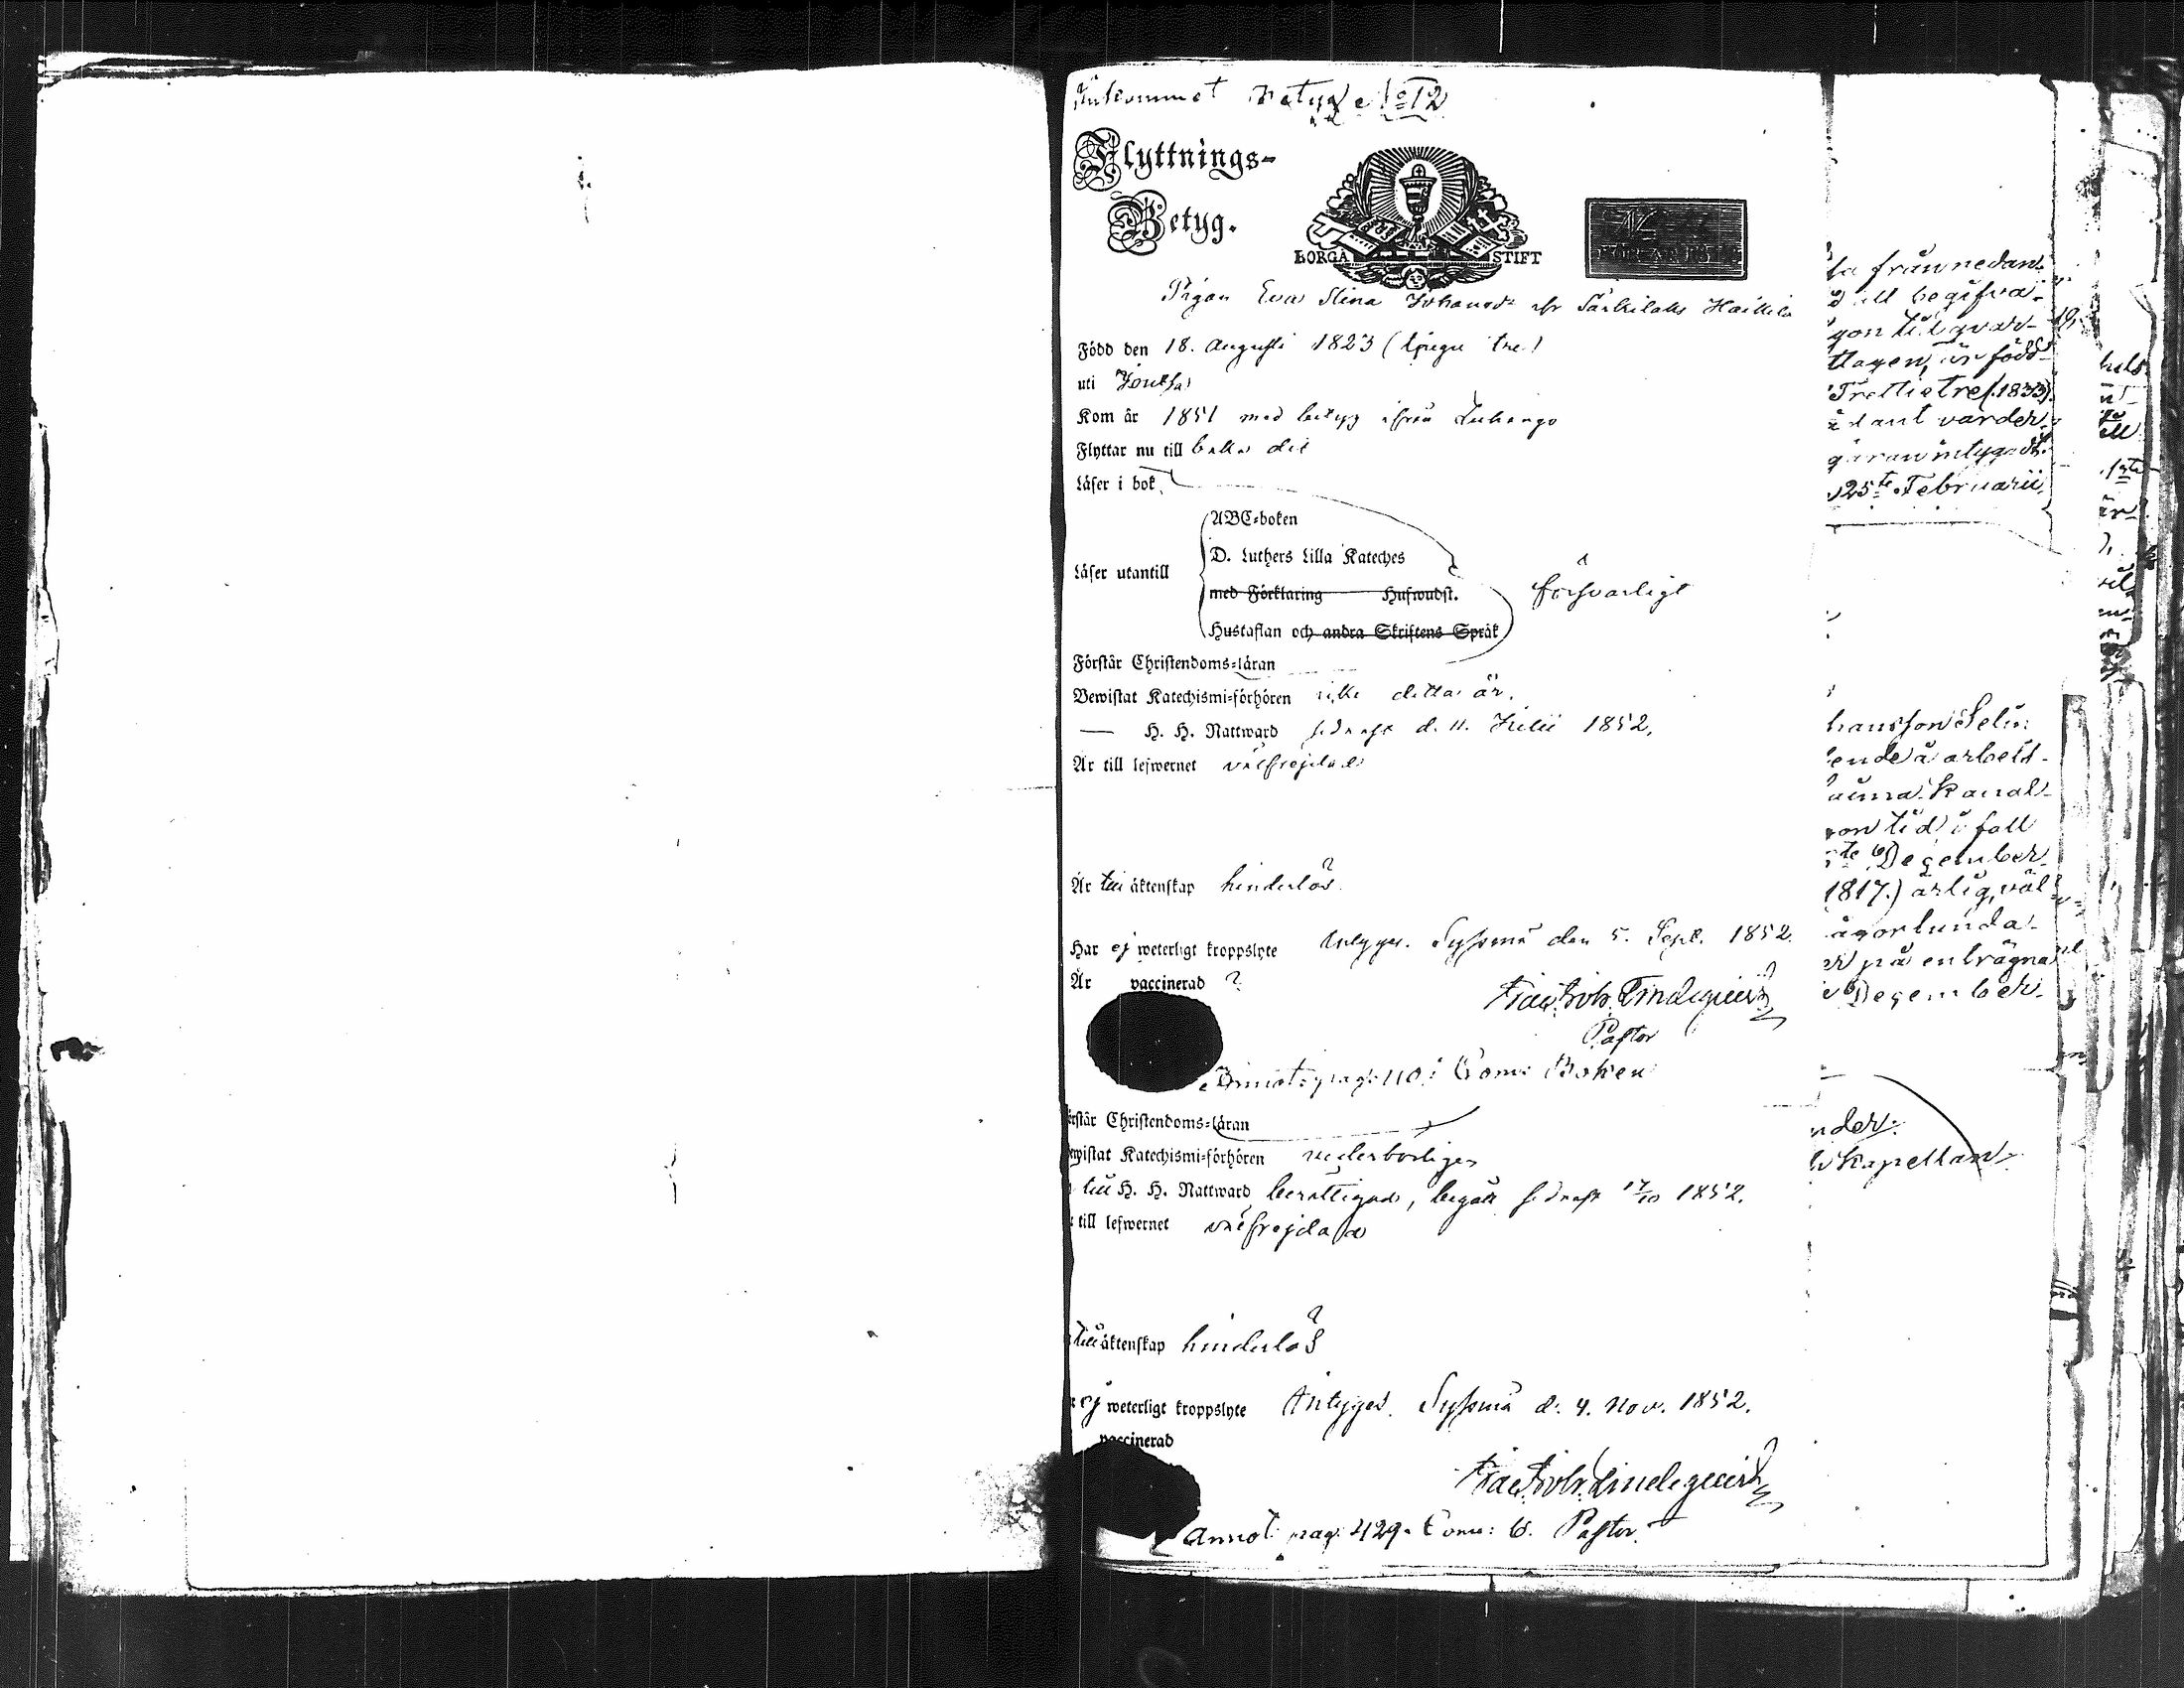 Inkommet Betyg No 12
Flyttnings-
Betyg.
BORGÅ STIFT
Pigan Eva Stina Johansdr ifr Särkilaks Heikkilä
Född den 18. Augusti 1823 (tjugu tre)
uti Joutsa
Kom år 1851 med betyg ifrån Luhango
Flyttar nu till baka dit
Läser i bok
ABC-boken
D. Luthers Lilla Kateches
Läser utantill
med Förklaring Hufwudst.
försvarligt
Hustaflan och andra Skriftens Språk
Förstår Christendoms-läran
Bewistat Katechismi-förhören icke detta år.
— H. H. Nattward sednast d. 11. Julii 1852.
Är till lefwernet välfrejdad
Är till äktenskap hinderlös.
Har ej weterligt kroppslyte Intygar. Syssmä den 5. Sept. 1852.
Är vaccinerad ?
Lindequist
Pastor
Annot: pag: 110 i Com: Boken
örstår Christendoms-läran
ewistat Katechismi-förhören vederbörligen
till H. H. Nattward berättigad, begått sednast 17/10 1852.
till lefwernet välfrejdad
till äktenskap hinderlös
ej weterligt kroppslyte Intygar. Syssmä d. 4. Nov. 1852.
vaccinerad
Lindequist
Annot pag: 429 Com: B. Pastor.
la från nedan-
till begifva
gon tid qvar-
tagen, är född
Trettio tre (1833)
idant varder
25te Februarii
hansson Selin
ende å arbets-
Kanal-
on tid i fall
te December
1817.) ärlig, väl-
ågorlunda
på enträgna
December
nder:
Kapellan